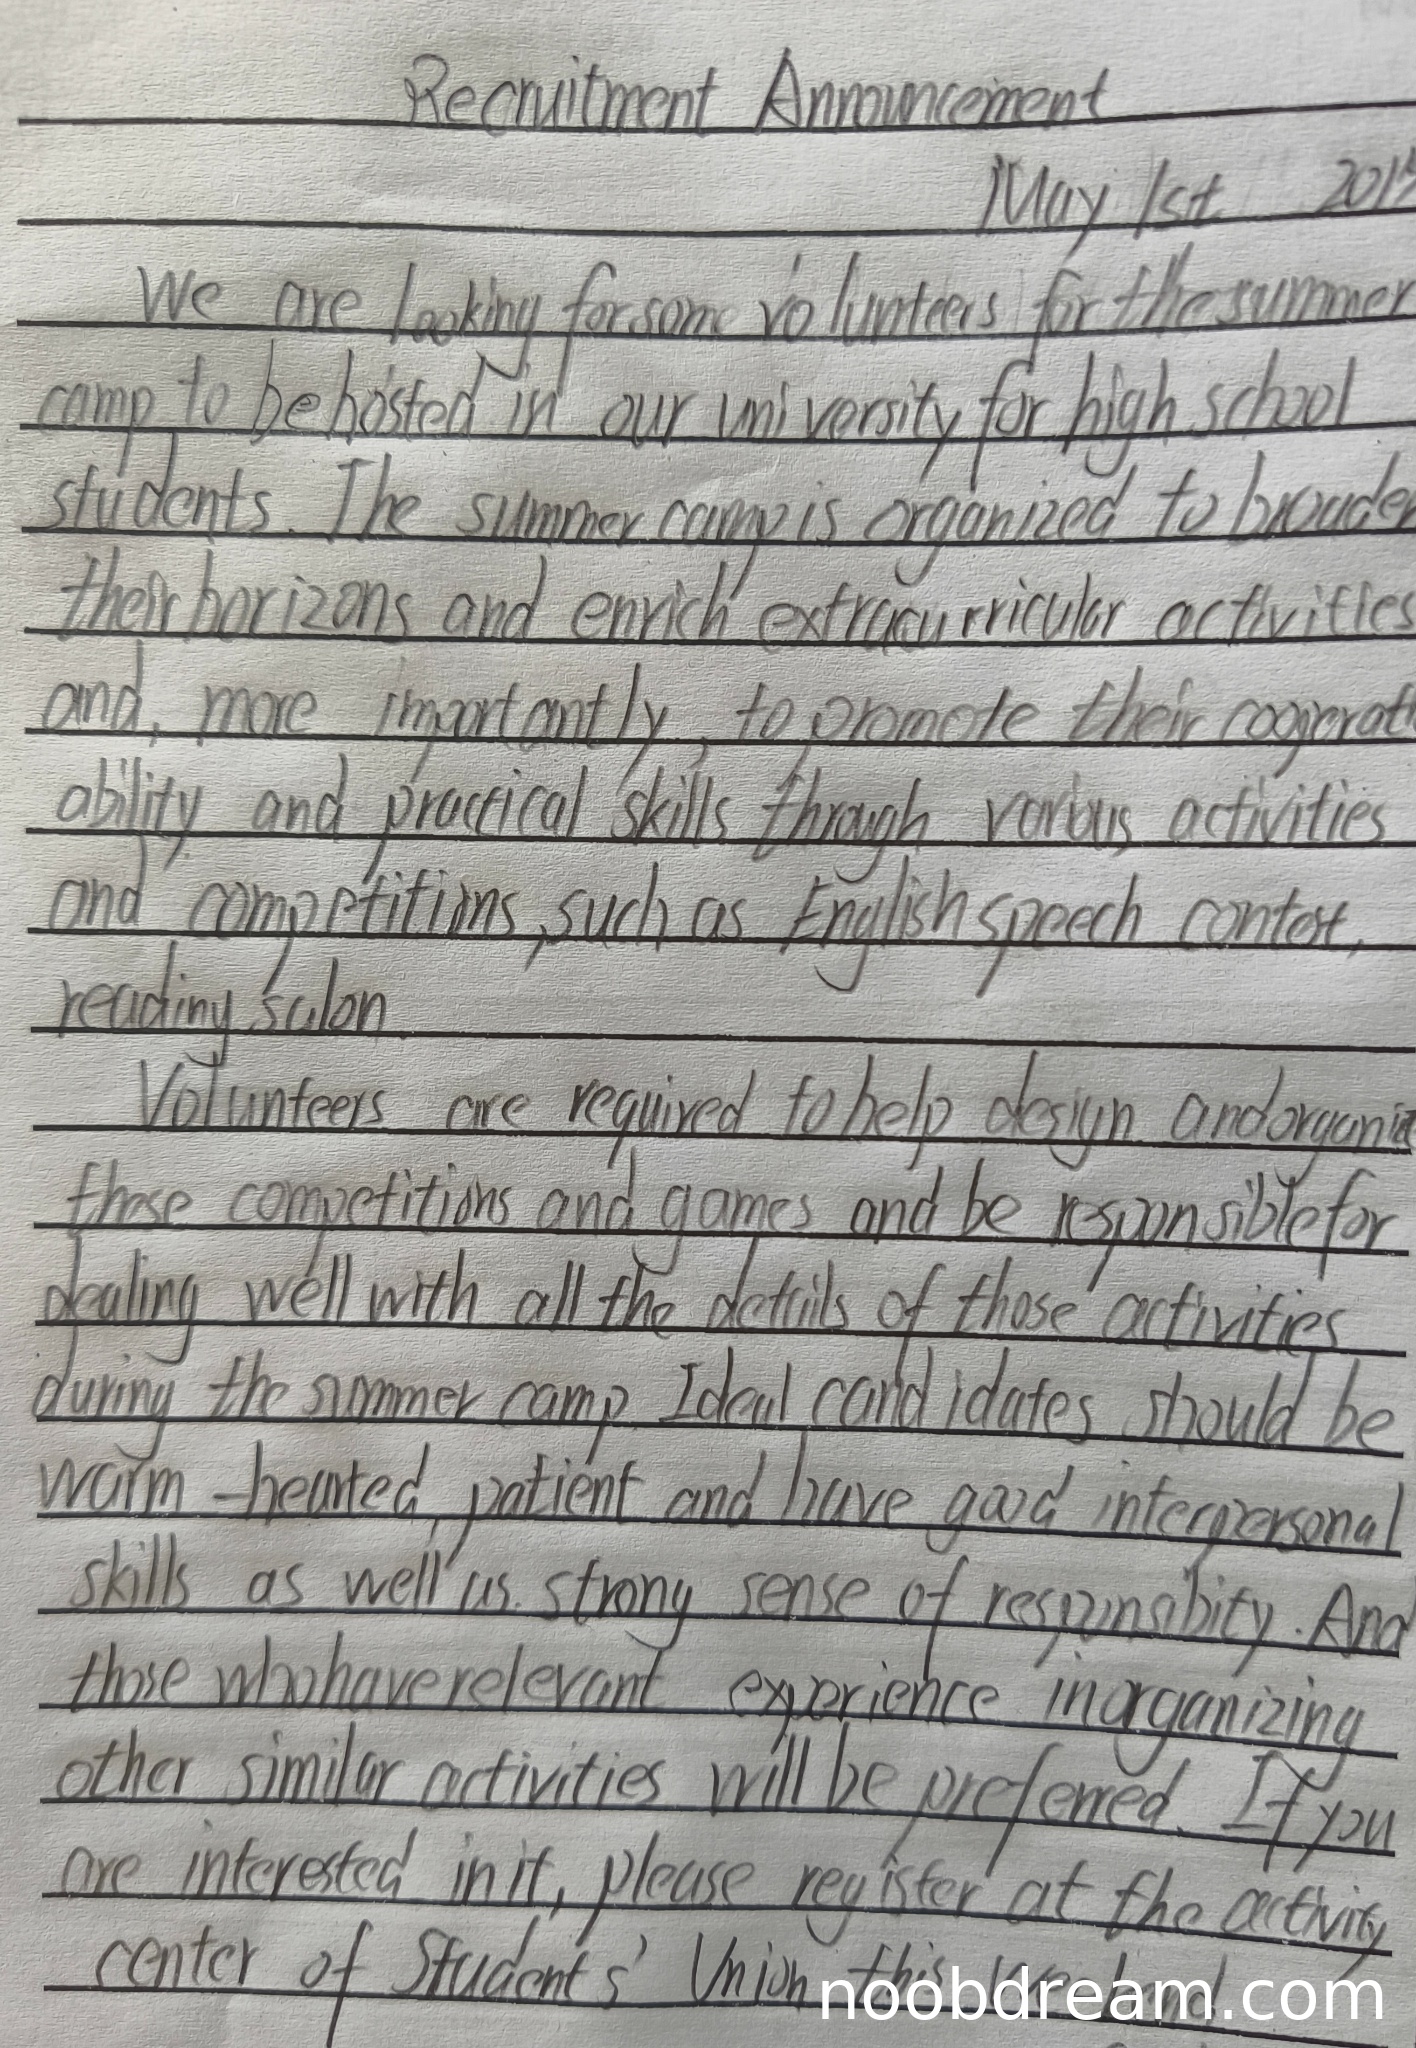 Recruitment Announcement
May 1st 2015
We are looking for some volunteers for the summer
camp to be hosted in our university for high school
students. The summer camp is organized to broaden
their horizons and enrich extracurricular activities
and, more importantly, to promote their cooperati
ability and practical skills through various activities
and competitions, such as English speech contest,
reading salon
Volunteers are required to help design and organize
those competitions and games and be responsible for
dealing well with all the details of those activities
during the summer camp. Ideal candidates should be
warm-hearted, patient and have good interpersonal
skills as well as strong sense of responsibity. And
those who have relevant experience in organizing
other similar activities will be preferred. If you
are interested in it, please register at the activity
center of Students' Union this weekend
noobdream.com